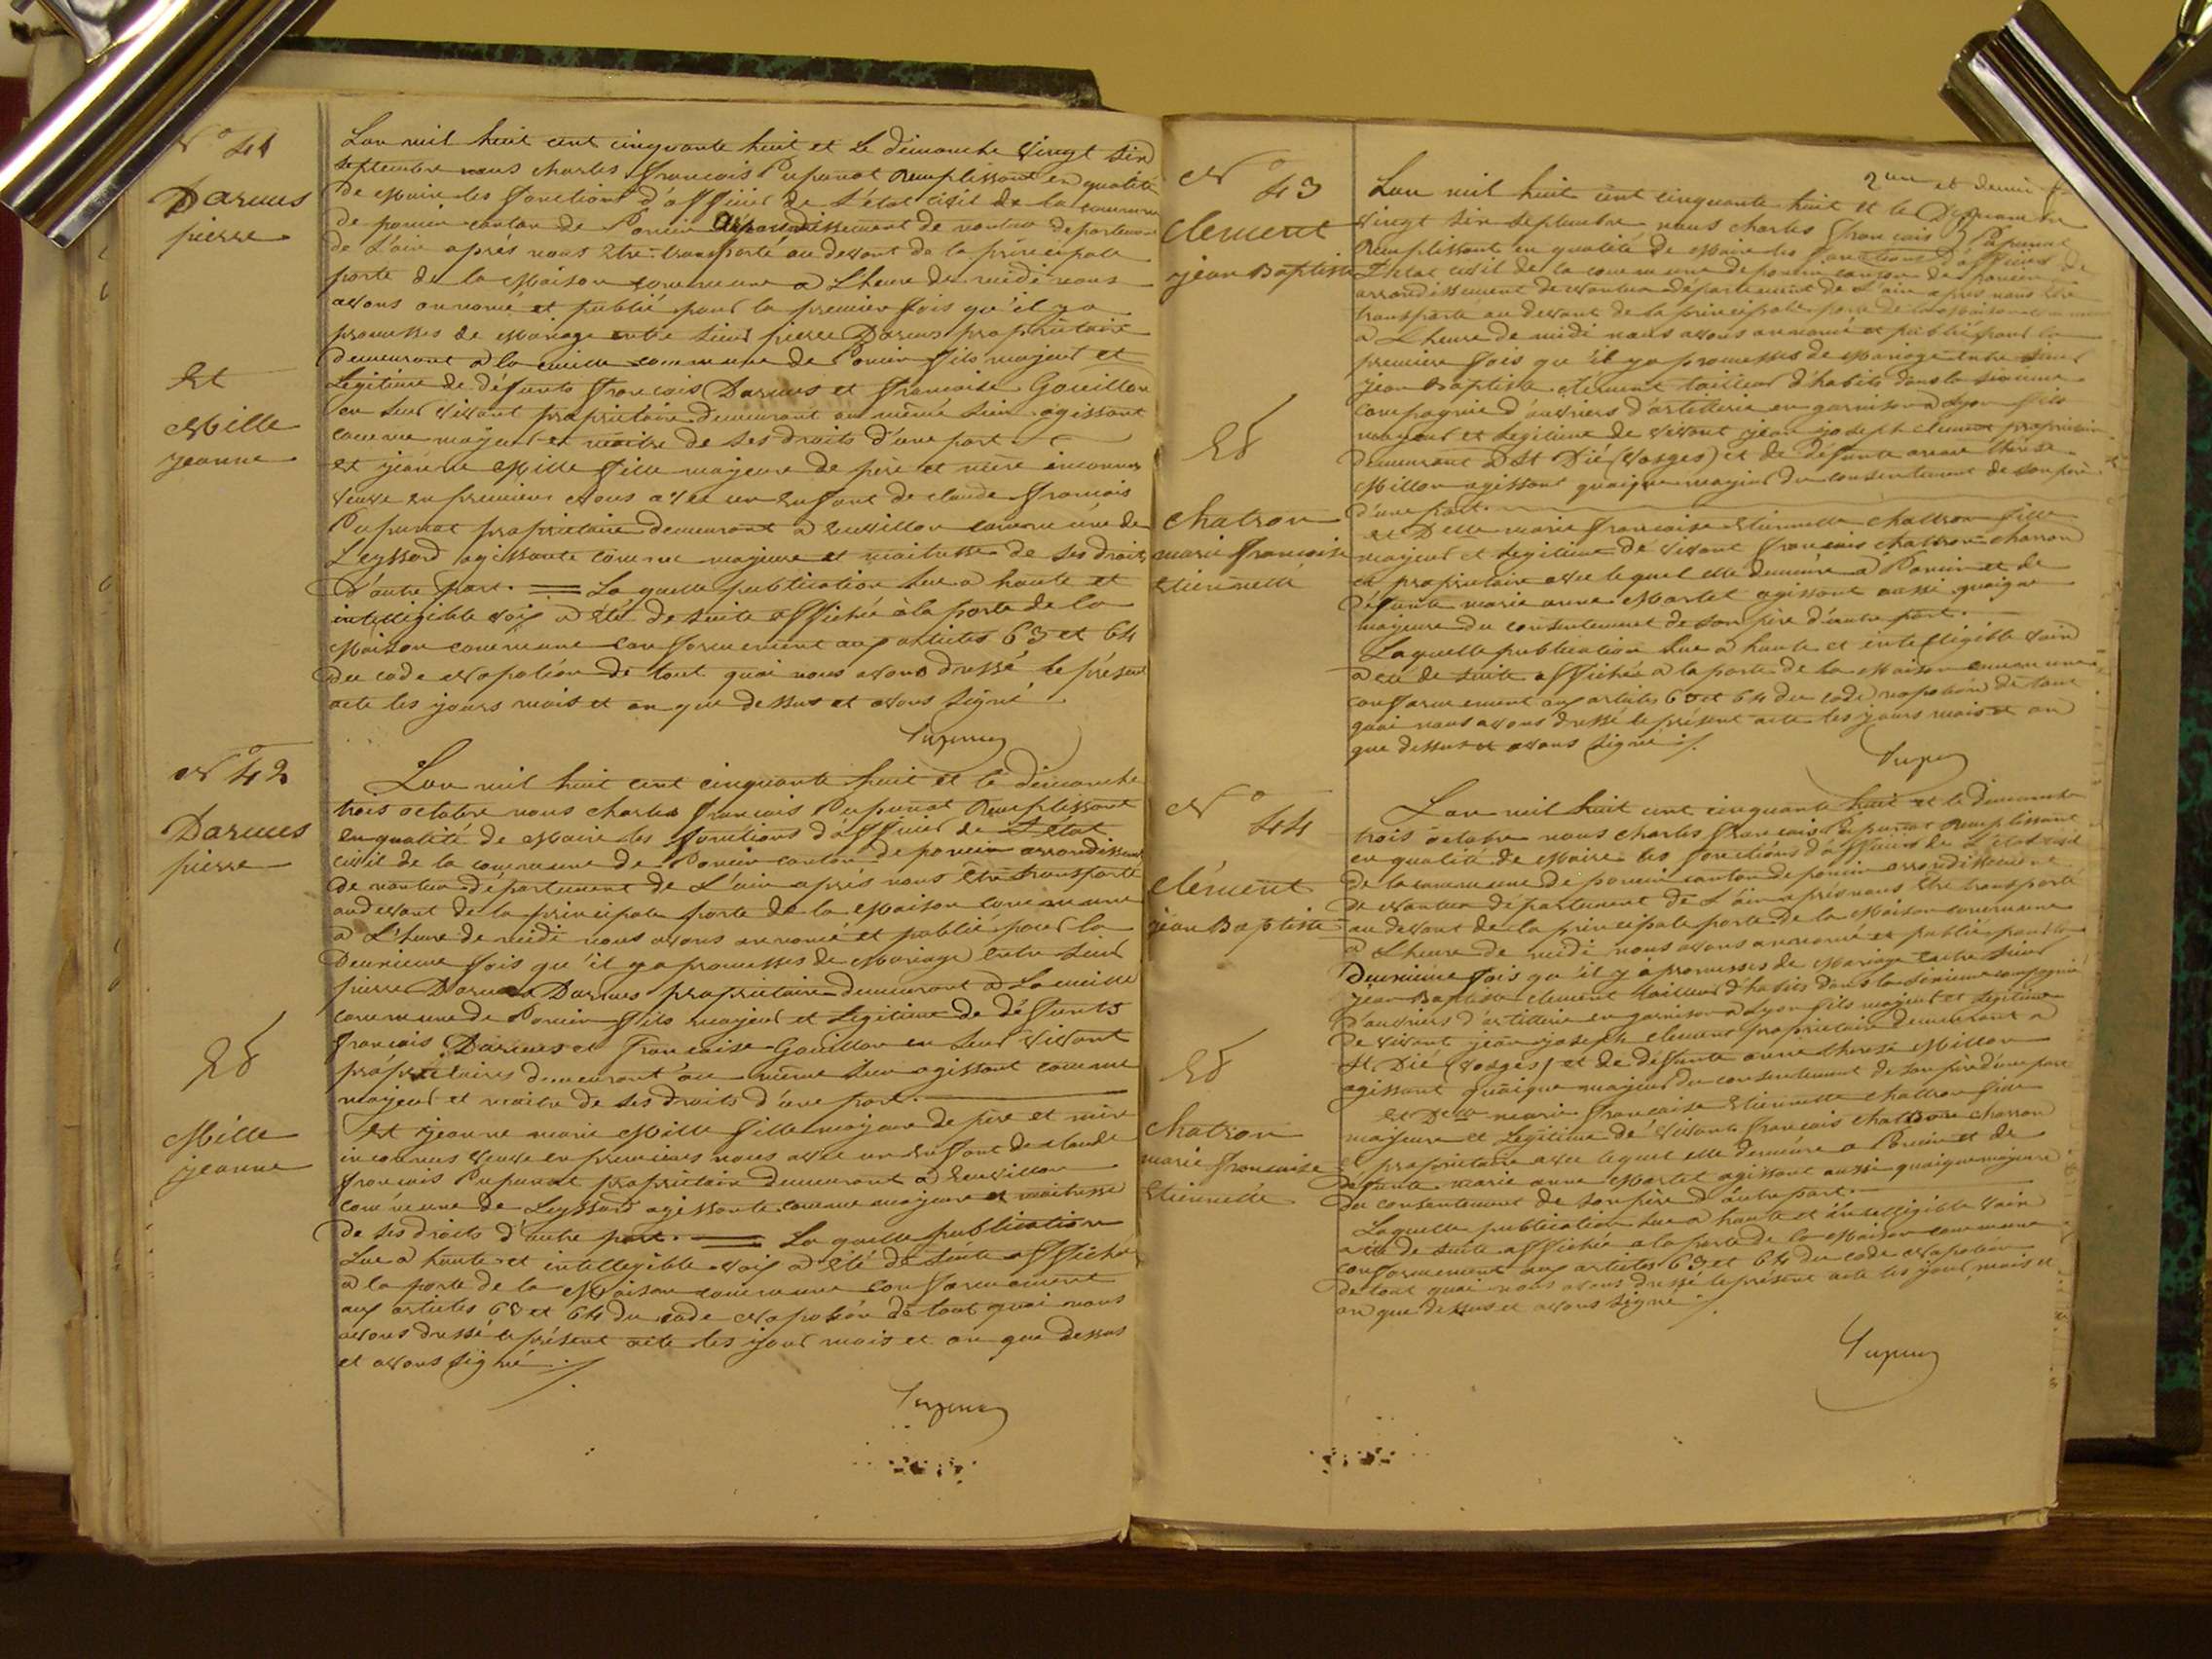 N° 41
Darmes
pierre
Et
Mille
jeanne
L'an mil huit cent cinquante huit et le dimanche vingt six
septembre nous charles francois Pupunat Remplissant en qualité
de Maire les fonctions d'officier de L'état civil de la commune
de poncin canton de Poncin arrondissement de nantua departement
de L'ain après nous être transporté au devant de la principale
porte de la Maison commune a L'heure de midi nous
avons annoncé et publié pour la premier fois qu'il y a
promesses de Mariage entre sieur pierre Darmes propriétaire
demeurant a la commune de Poncin fils majeur et
Légitime de défunts francois Darmes et francoise Gouillon
en leur vivant propriétaire demeurant au même lieu agissant
comme majeur et maitre de ses droits d'une part.
et jeanne Mille fille majeure de père et mère inconnus
veuve en premiere noces avec un enfant de claude francois
Pupunat propriétaire demeurant a commune de
Leyssard agissante comme majeure et maitresse de ses droits
d'autre part. = La quelle publication lue a haute et
intelligible voix a été de suite affichée à la porte de la
Maison commune conformement aux articles 63 et 64
du code Napoléon de tout quoi nous avons dressé le présent
acte les jours mois et an que dessus et avons signé
N° 42
Darmes
pierre
Et
Mille
jeanne
L'an mil huit cent cinquante huit et le dimanche
trois octobre nous charles francois Pupunat Remplissant
en qualité de Maire les fonctions d'officier de L'état
civil de la commune de Poncin canton de poncin arrondissement
de nantua département de L'ain après nous être transporté
au devant de la principale porte de la Maison commune
a L'heure de midi nous avons annoncé et publié pour la
Deuxieme fois qu'il y a promesses de Mariage entre sieur
pierre Darmes propriétaire demeurant a
commune de Poncin fils majeur et Légitime de défunts
francois Darmes et francoise Gouillon en leur vivant
propriétaires demeurant au même lieu agissant comme
majeur et maitre de ses droits d'une part.
Et jeanne marie Mille fille majeure de père et mère
inconnus veuve en premieres noces avec un enfant de claude
francois Pupunat propriétaire demeurant a
commune de Leyssard agissante comme majeure et maitresse
de ses droits d'autre part. = La quelle publication
Lue a haute et intelligible voix a été de suite affichée
a la porte de la Maison commune conformement
aux articles 63 et 64 du code Napoléon de tout quoi nous
avons dressé le présent acte les jour mois et an que dessus
et avons signé ./.
N° 43
Clement
jean Baptiste
Et
chatron
marie francoise
Etiennette
L'an mil huit cent cinquante huit et le Dimanche
vingt six septembre nous charles francois Pupunat
Remplissant en qualité de Maire les fonctions d'officier de
L'état civil de la commune de poncin canton de poncin
arrondissement de Nantua département de L'ain après nous être
transporté au devant de la principale porte de la Maison commune
a L'heure de midi nous avons annoncé et publié pour la
premiere fois qu'il y a promesses de Mariage entre sieur
Jean Baptiste clément tailleur d'habits dans la sixieme
compagnie d'ouvriers d'artillerie en garnison a Lyon fils
majeur et Légitime de vivant jean joseph clement propriétaire
demeurant a St Dié (Vosges) et de defunte anne thérèse
Millon agissant quoique majeur du consentement de son père
d'une part.
et Delle marie francoise Etiennette chatron fille
majeur et Légitime de vivant francois chatron charron
et propriétaire avec lequel elle demeure a Poncin et de
défunte marie anne Martel agissant aussi quoique
majeure du consentement de son père d'autre part.
La quelle publication Lue a haute et intelligible voix
a été de suite affichée a la porte de la Maison commune
conformement aux articles 63 et 64 du code napoléon de tout
quoi nous avons dressé le présent acte les jours mois et an
que dessus et avons signé ./.
N° 44
Clément
jean Baptiste
Et
chatron
marie francoise
Etiennette
L'an mil huit cent cinquante huit et le dimanche
trois octobre nous charles francois Pupunat Remplissant
en qualité de Maire les fonctions d'officier de L'état civil
de la commune de poncin canton de poncin arrondissement
de Nantua département de L'ain après nous être transporté
au devant de la principale porte de la Maison commune
a L'heure de midi nous avons annoncé et publié pour la
Deuxième fois qu'il y a promesses de Mariage entre sieur
Jean Baptiste clement tailleur d'habits dans la sixieme compagnie
d'ouvriers d'artillerie en garnison a Lyon fils majeur et Légitime
de vivant jean joseph clement propriétaire demeurant a
St Dié (Vosges) et de défunte anne therese Millon
agissant quoique majeur du consentement de son père d'une part
et Delle marie francoise Etiennette chatron fille
majeure et Légitime de vivant francois chatron charron
et propriétaire avec lequel elle demeure a Poncin et de
défunte marie anne Martel agissant aussi quoique majeure
du consentement de son père d'autre part.
Laquelle publication Lue a haute et intelligible voix
a été de suite affichée a la porte de la Maison commune
conformement aux articles 63 et 64 du code Napoléon
de tout quoi nous avons dressé le présent acte les jour mois et
an que dessus et avons signé ./.